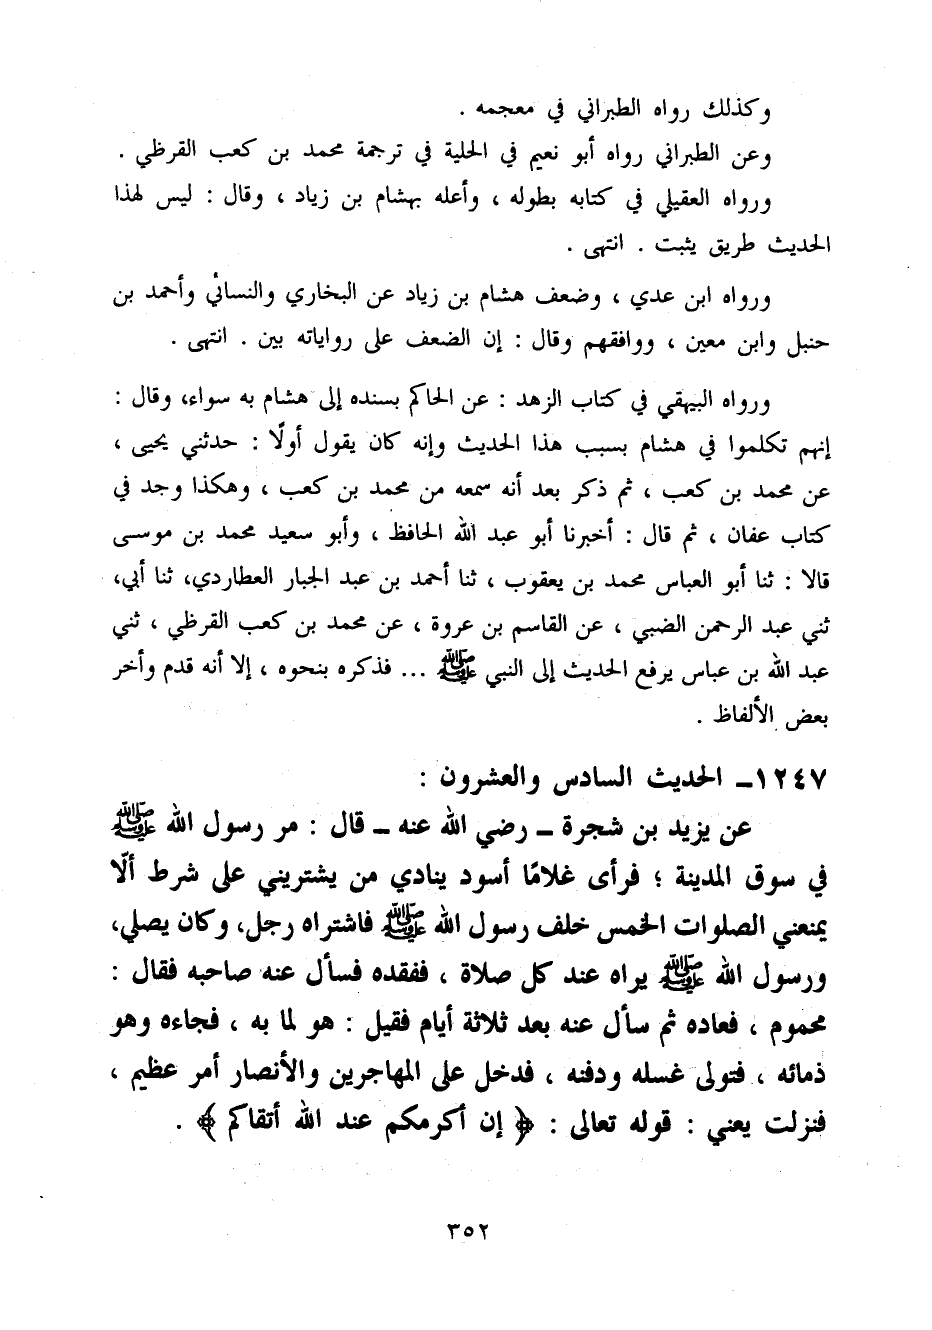 وكذلك رواه الطبراني في معجمه .
وعن الطبراني رواه أبو نعيم في الحلية في ترجمة محمد بن كعب القرظي .
ورواه العقيلي في كتابه بطوله ، وأعله بهشام بن زياد ، وقال : ليس لهذا
الحديث طريق يثبت . انتهى .
ورواه ابن عدي ، وضعف هشام بن زياد عن البخاري والنسائي وأحمد بن
حنبل وابن معين ، ووافقهم وقال : إن الضعف على رواياته بين . انتهى .
ورواه البيهقي في كتاب الزهد : عن الحاكم بسنده إلى هشام به سواء، وقال :
إنهم تكلموا في هشام بسبب هذا الحديث وإنه كان يقول أولًا : حدثني يحيى ،
عن محمد بن كعب ، ثم ذكر بعد أنه سمعه من محمد بن كعب ، وهكذا وجد في
كتاب عفان ، ثم قال : أخبرنا أبو عبد الله الحافظ ، وأبو سعيد محمد بن موسى
قالا : ثنا أبو العباس محمد بن يعقوب ، ثنا أحمد بن عبد الجبار العطاردي، ثنا أبي،
ثني عبد الرحمن الضبي ، عن القاسم بن عروة ، عن محمد بن كعب القرظي ، ثني
عبد الله بن عباس يرفع الحديث إلى النبي ﷺ ... فذكره بنحوه ، إلا أنه قدم وأخر
بعض الألفاظ .
١٢٤٧ـ الحديث السادس والعشرون :
عن يزيد بن شجرة ـ رضي الله عنه ـ قال : مر رسول الله ﷺ
في سوق المدينة ؛ فرأى غلامًا أسود ينادي من يشتريني على شرط ألّا
يمنعني الصلوات الخمس خلف رسول الله ﷺ فاشتراه رجل، وكان يصلي،
ورسول الله ﷺ يراه عند كل صلاة ، ففقده فسأل عنه صاحبه فقال :
محموم ، فعاده ثم سأل عنه بعد ثلاثة أيام فقيل : هو لما به ، فجاءه وهو
ذمائه ، فتولى غسله ودفنه ، فدخل على المهاجرين والأنصار أمر عظيم ،
فنزلت يعني : قوله تعالى : ﴿ إن أكرمكم عند الله أتقاكم ﴾ .
٣٥٢